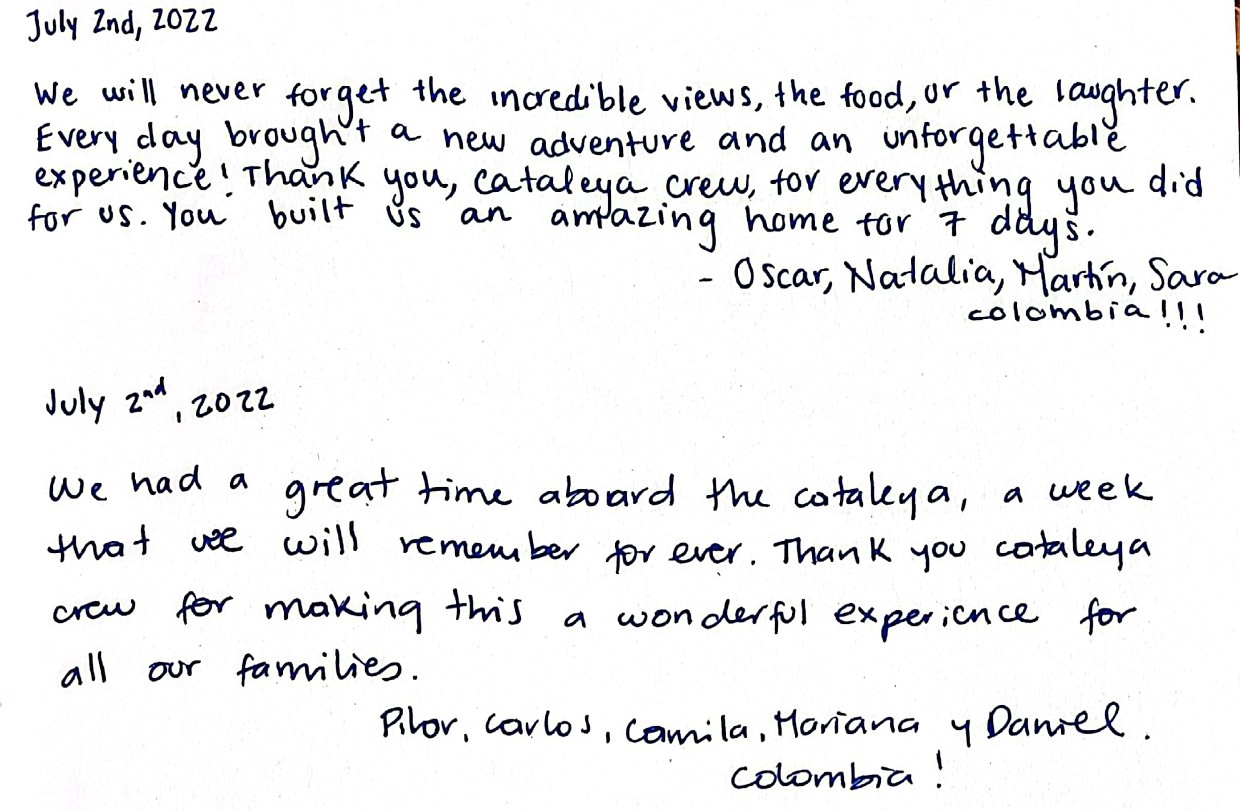 July 2nd, 2022
We will never forget the incredible views, the food, or the laughter.
Every day brought a new adventure and an unforgettable
experience! Thank you, Cataleya crew, for everything you did
for us. You built us an amazing home for 7 days.
- Oscar, Natalia, Martín, Sara
colombia!!!
July 2nd, 2022
We had a great time aboard the cataleya, a week
that we will remember for ever. Thank you cataleya
crew for making this a wonderful experience for
all our families.
Pilar, Carlos, Camila, Mariana y Daniel.
Colombia!